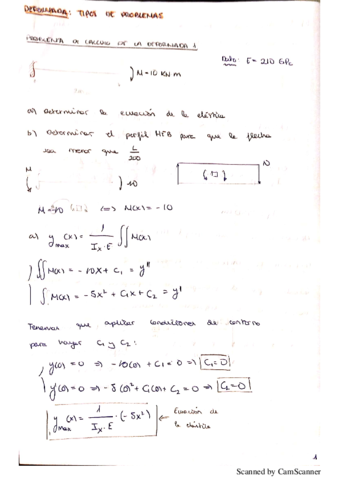 DEFORMADA: TIPOS DE PROBLEMAS
PROBLEMA DE CALCULO DE LA DEFORMADA 1
Dato: E = 210 GPa
M=10 KN m
a) Determinar la ecuación de la elástica
b) Determinar el perfil HEB para que la flecha
sea menor que L/300
M
10
M(x) = -10
a) y max (x) = 1/(Ix·E) ∬ M(x)
∬ M(x) = -10x + C1 = y'
∫ M(x) = -5x² + C1x + C2 = y
Tenemos que aplicar condiciones de contorno
para hayar C1 y C2:
y(0) = 0 => -10(0) + C1 = 0 => C1=0
y(0) = 0 => -5(0)² + C1(0) + C2 = 0 => C2=0
y max (x) = 1/(Ix·E) · (-5x²) ← Ecuación de
la elástica
1
Scanned by CamScanner